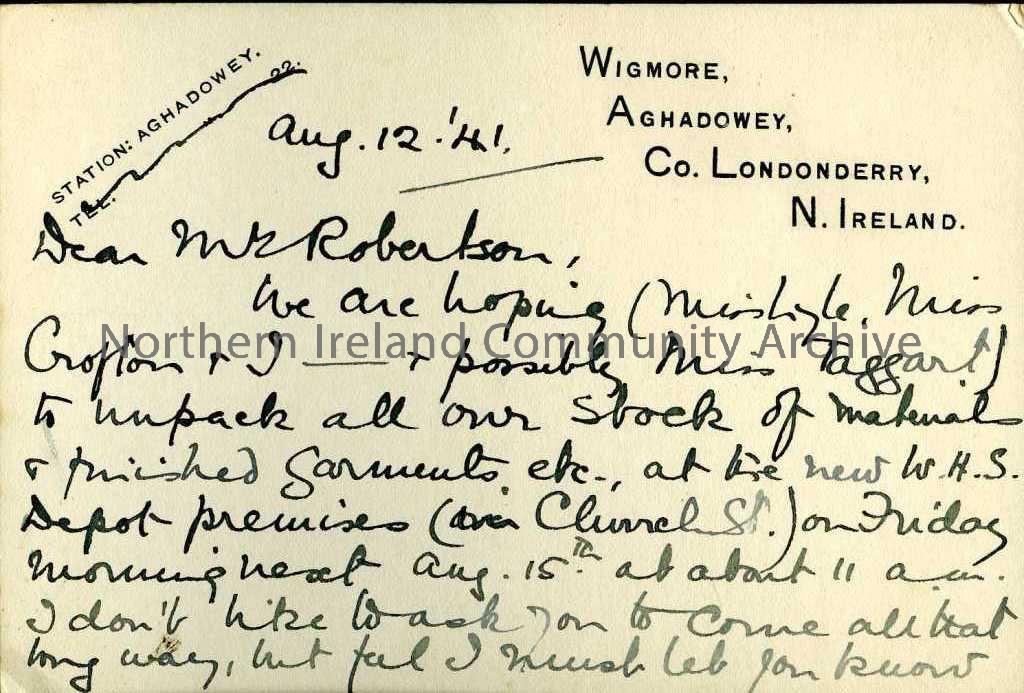 STATION: AGHADOWEY.
TEL. 22.
WIGMORE,
AGHADOWEY,
CO. LONDONDERRY,
N. IRELAND.
Aug. 12. '41.
Dear Mrs Robertson,
We are hoping (Miss Lyle, Miss
Crofton & I — & possibly Miss Taggart)
to unpack all our stock of materials
& finished garments etc., at the new W.H.S.
Depot premises (in Church St.) on Friday
morning next Aug. 15th. at about 11 a.m.
I don't like to ask you to come all that
long way, but feel I must let you know
Northern Ireland Community Archive